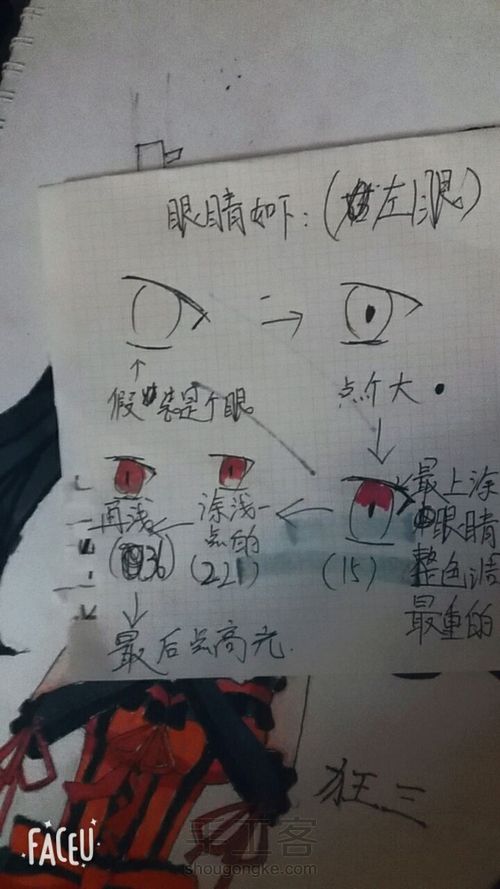 眼睛如下：(左眼)
假装是个眼
点个大●
最上涂
眼睛
整色调
最重的
(15)
涂浅一
点的
(221)
再浅
(36)
最后点高光.
狂三
FACEU
手工客
shougongke.com